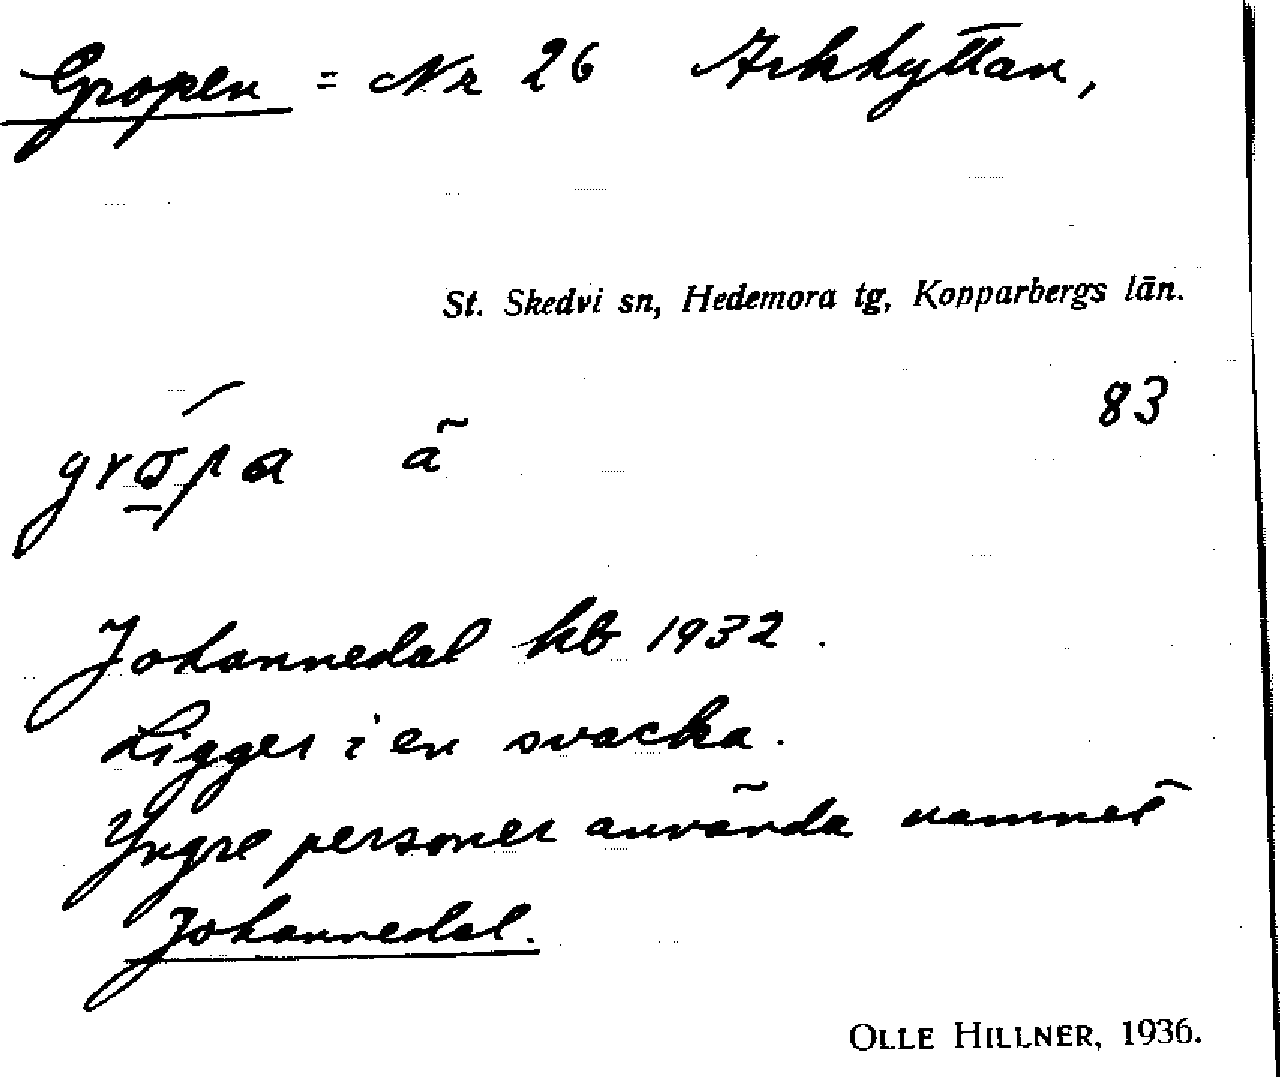 Gropen = Nr 26 Arkhyttan,
St. Skedvi sn, Hedemora tg, Kopparbergs län.
83
grópa ã
Johannedal kb 1932.
Ligger i en svacka.
Yngre personer använda namnet
Johannedal.
OLLE HILLNER, 1936.